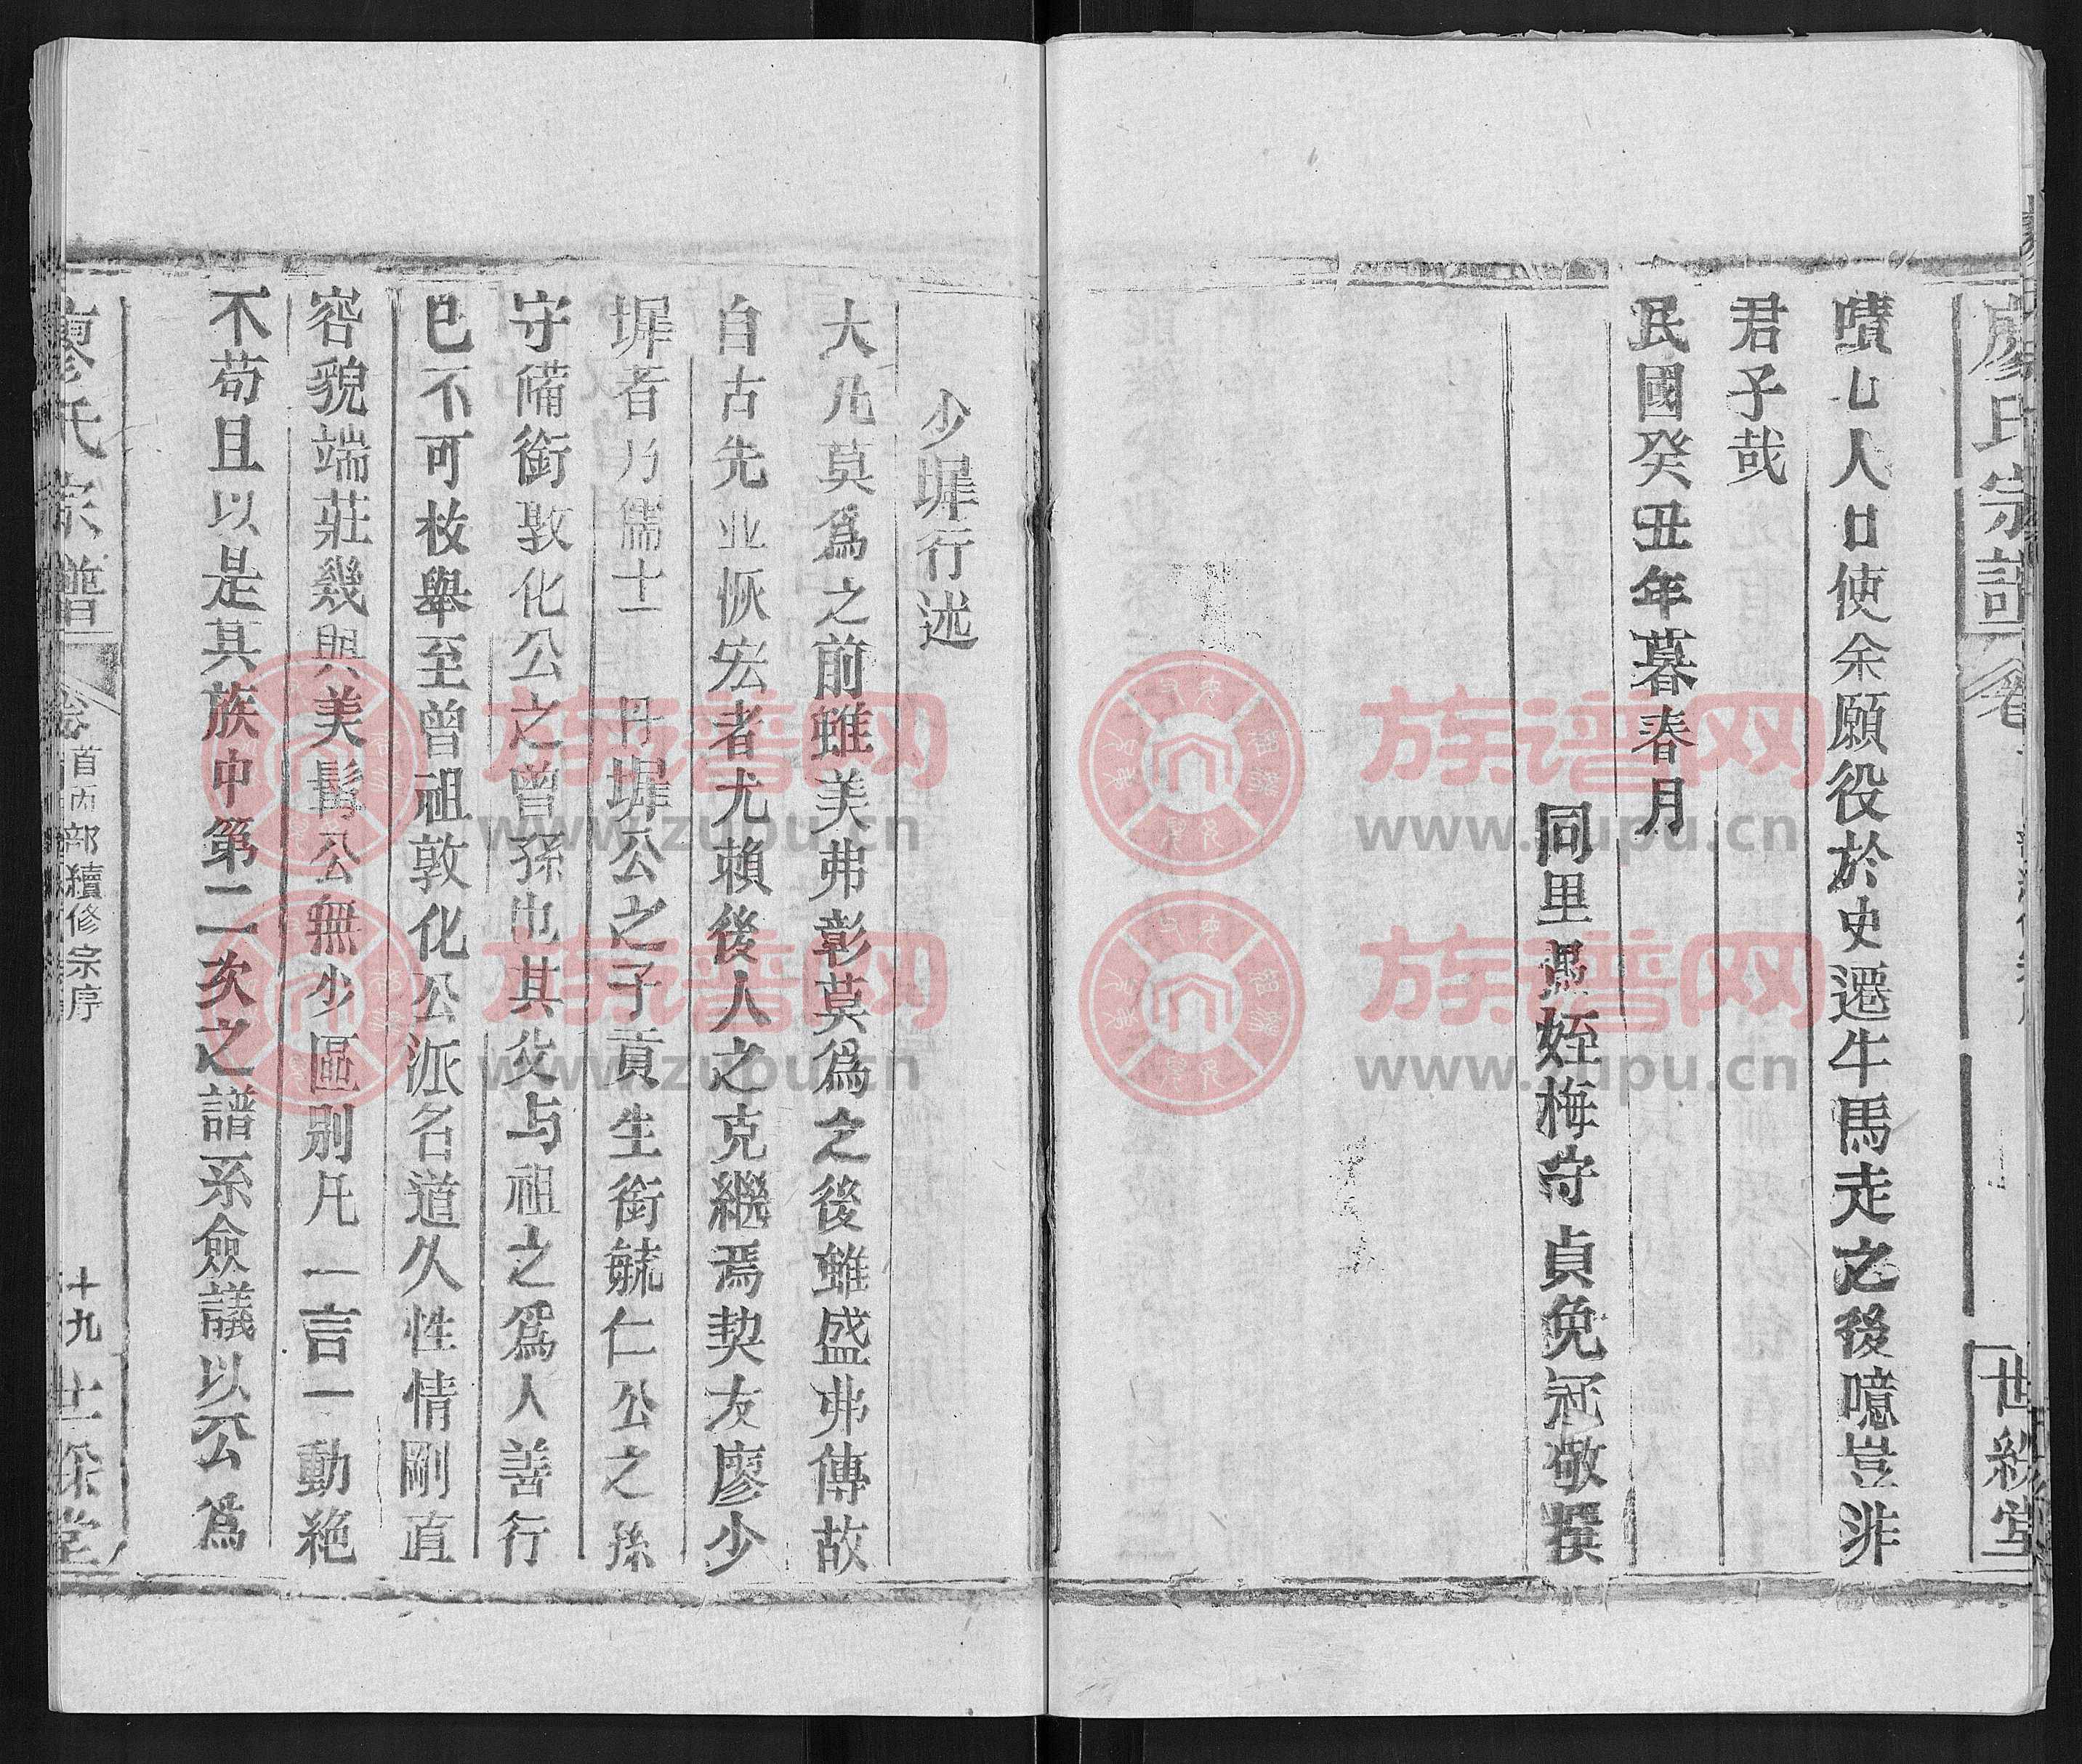 廖氏宗譜 卷 世綵堂
嘖乚人口使余願役於史遷牛馬走之後噫豈非
君子哉
民國癸丑年暮春月
同里馮姪梅守貞免冠敬撰
少墀行述
大凡莫爲之前雖美弗彰莫爲之後雖盛弗傳故
自古先业恢宏者尤賴後人之克繼焉契友廖少
墀者乃儒士 丹墀公之子貢生銜毓仁公之孫
守備銜敦化公之曾孫也其父与祖之爲人善行
已不可枚舉至曾祖敦化公派名道久性情剛直
容貌端莊幾與美髯公無少區別凡一言一動絶
不苟且以是其族中第二次之譜系僉議以公爲
廖氏宗譜 卷首 丙部續修宗序 十九 世綵堂
族谱网
www.zupu.cn
族谱网
www.zupu.cn
族谱网
www.zupu.cn
族谱网
www.zupu.cn